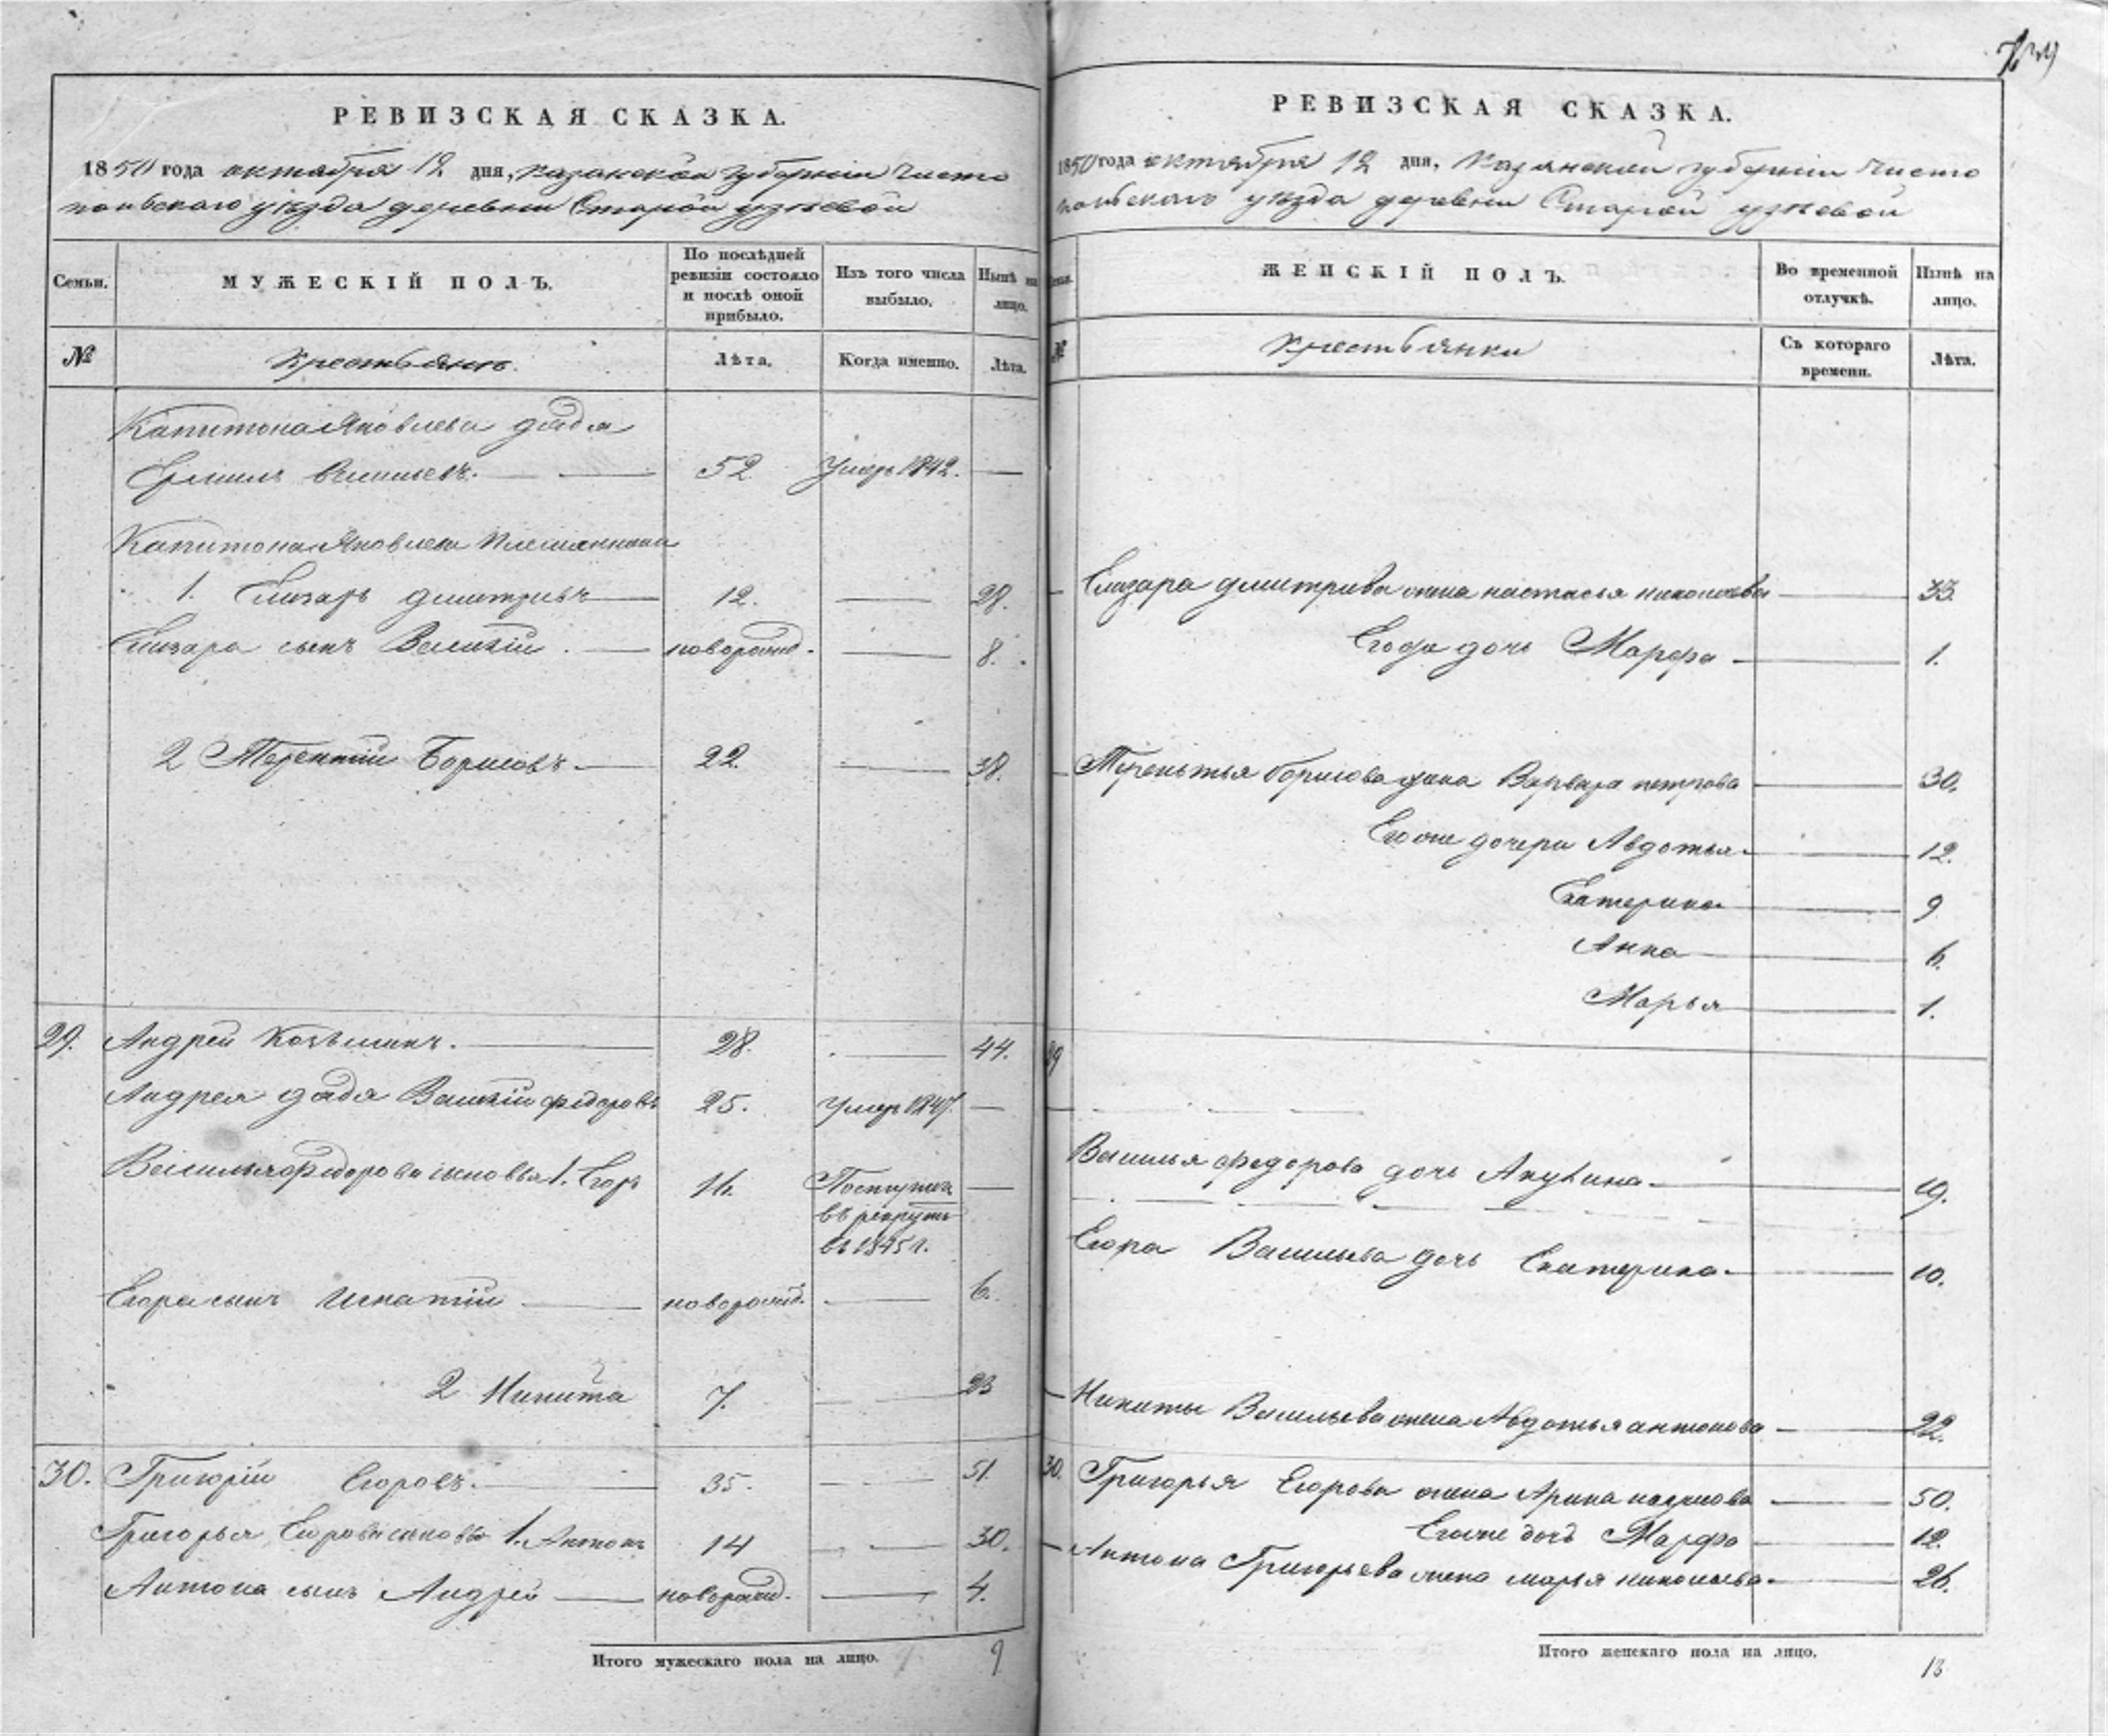 РЕВИЗСКАЯ СКАЗКА.
1850 года октября 12 дня, Казанской губернiи Чисто
польскаго уѣзда деревни Старой Узѣевой
Семьи. МУЖЕСКIЙ ПОЛЪ. По послѣдней ревизiи состояло и послѣ оной прибыло. Изъ того числа выбыло. Нынѣ на лицо.
№ Крестьянъ. Лѣта. Когда именно. Лѣта.
Капитона Яковлева дядя
Ермилъ 52 Умеръ 1842.
Капитона Яковлева племянники
1. Елизаръ Дмитрiевъ 12. 28.
Елизара сынъ Василiй новорожд. 8.
2 Терентiй Борисовъ 22. 38.
29. Андрей Козьминъ. 28. 44.
Андрея дядя Василiй Федоровъ 25. Умеръ 1847.
Василья Федорова сыновья 1. Егоръ 16. Поступилъ
въ рекруты
въ 1845 г.
Егора сынъ Игнатiй новорожд. 6.
2 Никита 7. 23
30. Григорiй Егоровъ. 35. 51.
Григорья Егорова сыновья 1. Антонъ 14 30.
Антона сынъ Андрей новорожд. 4.
Итого мужескаго пола на лицо. 9
РЕВИЗСКАЯ СКАЗКА.
1850 года октября 12 дня, Казанской губернiи Чисто
польскаго уѣзда деревни Старой Узѣевой
ЖЕНСКIЙ ПОЛЪ. Во временной отлучкѣ. Нынѣ на лицо.
№ Крестьянки Съ котораго времени. Лѣта.
Елизара Дмитрива жена Настасья 33.
Его дочь Марфа 1.
Терентья Борисова жена Варвара Петрова 30.
Его же дочери Авдотья 12.
Екатерина 9
Анна 6.
Марья 1.
29
Василья Федорова дочь Акулина 19.
Егора Васильева дочь Екатерина 10.
Никиты Васильева жена Авдотья Антонова 22.
30. Григорья Егорова жена Арина Наумова 50.
Его же дочь Марфа 12.
Антона Григорьева жена Марья Николаева 26.
Итого женскаго пола на лицо. 13